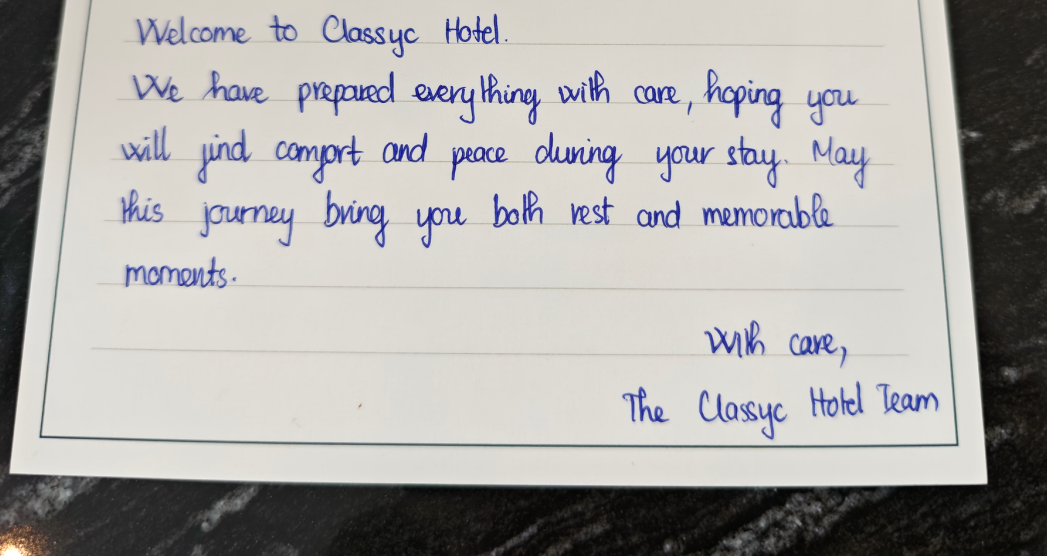 Welcome to Classyc Hotel.
We have prepared everything with care, hoping you
will find comfort and peace during your stay. May
this journey bring you both rest and memorable
moments.
With care,
The Classyc Hotel Team